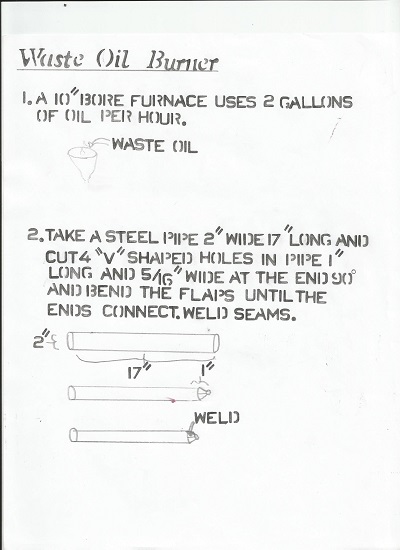 Waste Oil Burner
1. A 10" BORE FURNACE USES 2 GALLONS
OF OIL PER HOUR.
WASTE OIL
2. TAKE A STEEL PIPE 2" WIDE 17" LONG AND
CUT 4 "V" SHAPED HOLES IN PIPE 1"
LONG AND 5/16" WIDE AT THE END 90°
AND BEND THE FLAPS UNTIL THE
ENDS CONNECT. WELD SEAMS.
2"
17" 1"
WELD